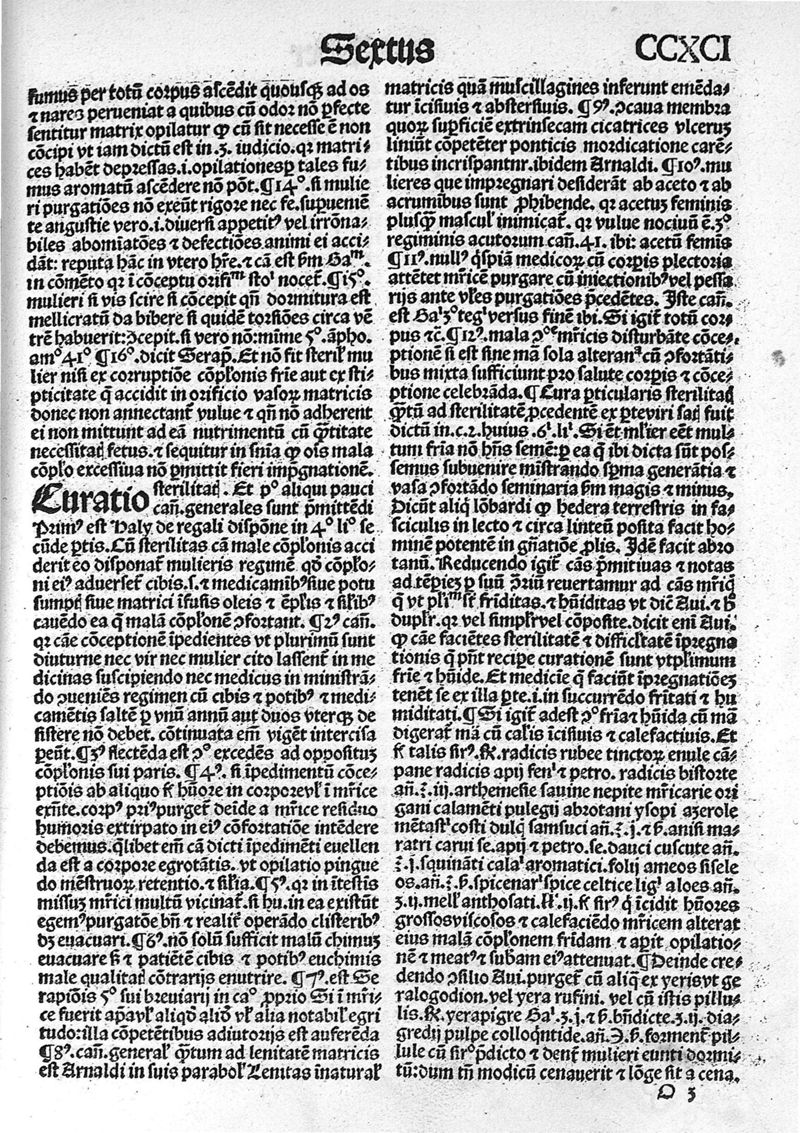 Sextus
CCXCI
fumus per totū corpus ascēdit quousqꝫ ad os
⁊ nareꝫ perueniat a quibus cū odor nō ꝑfecte
sentitur matrix opilatur ꝙ cū sit necesse ē non
cōcipi vt iam dictū est in .3. iudicio. qꝛ matri⸗
ces habēt depressas .i. opilationesꝙ tales fu⸗
mus aromatū ascēdere nō pōt. ¶14°. si mulie
ri purgatiōes nō exeūt rigore nec fe. supueniē
te angustie vero .i. diuersi appetitꝰ vel irrōna⸗
biles abomiatōes ⁊ defectiōes animi ei acci⸗
dāt: reputa hāc in vtero hr̄e. ⁊ cā est ẜm Gaᵐ.
in cōmēto qꝛ ī cōceptu orifiᵐ stoⁱ nocet᷑. ¶15°.
mulieri si vis scire si cōcepit qn̄ dormitura est
mellicratū da bibere si quidē torsiōes circa vē
trē habuerit: ↄcepit. si vero nō: mīme 5°. āpho.
am° 41° ¶16°. dicit Serap. Et nō fit steril᷑ mu
lier nisi ex corruptiōe cōplōnis frīe aut ex sti⸗
pticitate q̄ accidit in orificio vasoꝝ matricis
donec non annectant᷑ vulue ⁊ qn̄ nō adherent
ei non mittunt ad eā nutrimentū cū q̄titate
necessitatꝭ fetus. ⁊ sequitur in sn̄ia ꝙ oīs mala
cōplo excessiua nō ꝑmittit fieri impgnationē.
Curatio sterilitatꝭ. Et p° aliqui pauci
cañ. generales sunt p̄mittēdi
Primꝰ est Haly de regali dispōne in 4° li° se
cūde ꝑtis. Cū sterilitas cā male cōplōnis acci
derit eo disponat᷑ mulieris regimē qd̄ cōplo⸗
ni eiꝰ aduerset᷑ cibis .s. ⁊ medicamībꝰ siue potu
sumptꝭ siue matrici īfusis oleis ⁊ ēplis ⁊ silibꝰ
cauēdo ea q̄ malā cōplonē ↄfortant. ¶2ꝰ cañ.
qꝛ cāe cōceptionē īpedientes vt plurimū sunt
diuturne nec vir nec mulier cito lassent᷑ in me
dicinas suscipiendo nec medicus in ministrā⸗
do ↄueniēs regimen cū cibis ⁊ potibꝰ ⁊ medi⸗
camētis saltē ꝑ vnū annū aut duos vterqꝫ de
sistere nō debet. cōtinuata em̄ vigēt intercisa
peūt. ¶3ꝰ flectēda est ↄ° excedēs ad oppositūꝫ
cōplōnis sui paris. ¶4ꝰ. si īpedimentū cōce⸗
ptiōis ab aliquo sit hūore in corpore vel ī mr̄ice
exn̄te. corpꝰ priꝰ purget᷑ deīde a mr̄ice residuo
humoris extirpato in eiꝰ cōfortatiōe intēdere
debemus. q̄libet em̄ cā dicti īpedimēti euellen
da est a corpore egrotātis. vt opilatio pingue
do mēstruoꝝ retentio. ⁊ silīa. ¶5ꝰ. qꝛ in ītestīs
missuꝫ mr̄ici multū vicinat᷑. si hu. in ea existūt
egemꝰ purgatōe bn̄ ⁊ realit᷑ operādo clisteribꝰ
dꝫ euacuari. ¶6ꝰ. nō solū sufficit malū chimuꝫ
euacuare s ⁊ patiētē cibis ⁊ potibꝰ euchimis
male qualitatꝭ cōtrarijs enutrire. ¶7ꝰ. est Se
rapiōis 5° sui breuiarij in ca° ꝓprio Si ī mr̄i⸗
ce fuerit apāvl᷑ aliqd̄ aliō vl᷑ alia notabil᷑ egri
tudo: illa cōpetētibus adiutorijs est auferēda
¶8ꝰ. cañ. general᷑ q̄tum ad lenitatē matricis
est Arnaldi in suis parabol᷑ Lenitas īnatural᷑
matricis quā muscillagines inferunt emēda⸗
tur īcisiuis ⁊ abstersiuis. ¶9ꝰ. ↄcaua membra
quoꝝ suꝑficiē extrinsecam cicatrices vlceruꝫ
liniūt cōpetēter ponticis mordicatione carē⸗
tibus incrispantnr. ibidem Arnaldi. ¶10ꝰ. mu
lieres que impregnari desiderāt ab aceto ⁊ ab
acrumibus sunt ꝓhibende. qꝛ acetuꝫ feminis
plusqꝫ mascul᷑ inimicat᷑. qꝛ vulue nociuū ē .3°
regiminis acutorum cañ. 41. ibi: acetū femīs
¶11ꝰ. nullꝰ q̄spiā medicoꝝ cū corpis plectoria
attētet mr̄icē purgare cū iniectionibꝰ vel pessa
rijs ante vl̄es purgatiōes p̄cedētes. Iste cañ.
est Gaⁱ 3° tegⁱ versus finē ibi. Si igit᷑ totū cor⸗
pus ⁊c. ¶12ꝰ. mala ↄ°ᵉ mr̄icis disturbāte cōce⸗
ptionē si est sine mā sola alteranᵃ cū ↄfortāti⸗
bus mixta sufficiunt pro salute corpis ⁊ cōce⸗
ptione celebrāda. ¶Cura ꝑticularis sterilitatꝭ
q̄tū ad sterilitatē ꝓcedentē ex ꝑte viri satꝭ fuit
dictū in .c. 2. huius .6ⁱ. liⁱ. Si ēt ml̄ier eēt mul⸗
tum frīa nō hn̄s semē: p ea q̄ ibi dicta sūt pos⸗
semus subuenire mīstrando sp̄ma generātia ⁊
vasa ↄfortādo seminaria ẜm magis ⁊ minus.
Dicūt aliq̄ lōbardi ꝙ hedera terrestris in fa⸗
sciculis in lecto ⁊ circa linteū posita facit ho⸗
minē potentē in gn̄atiōe ꝓlis. Idē facit abro
tanū. Reducendo igit᷑ cās pmitiuas ⁊ notas
ad tēpiez p suū ↄrīū reuertamur ad cās mr̄icꝭ
q̄ vt plīᵐ st᷑ frīditas. ⁊ hūiditas vt dic̄ Aui. ⁊ h
duplr̄. qꝛ vel simplr̄ vel cōposite. dicit eni Aui.
ꝙ cāe faciētes sterilitatē ⁊ difficltatē īpregna
tionis q̄ pn̄t recipe curationē sunt vt plimum
frīe ⁊ hūide. Et medicīe q̄ faciūt īpregnatiōeꝫ
tenēt se ex illa ꝑte .i. in succurrēdo frītati ⁊ hu
miditati. ¶Si igit᷑ adest ↄ° frīa ⁊ hūida cū mā
digerat᷑ mā cū calīs īcisiuis ⁊ calefactiuis. Et
sit talis sirꝰ. ℞. radicis rubee tinctoꝝ enule cā⸗
pane radicis apij fenⁱ ⁊ petro. radicis bistorte
añ. ʒ. iij. arthemesie sauine nepite mr̄icarie ori
gani calamēti pulegij abrotani ysopi azerole
mētast᷑ costi dulcꝭ samsuci añ. ʒ. j. ⁊ ẜ. anisi ma⸗
ratri carui se. apij ⁊ petro. se. dauci cuscute añ.
ʒ. j. squināti calaⁱ aromatici. folij ameos sisele
os. añ. ʒ. ẜ. spicenarⁱ spice celtice ligⁱ aloes añ.
ʒ. ij. mell᷑ anthosati. ℔. ij. sit sirꝰ q̄ īcidit hūores
grossos viscosos ⁊ calefaciēdo mr̄icem alterat
eius malā cōplonem frīdam ⁊ apit opilatio⸗
nē ⁊ meatꝰ ⁊ subam eiꝰ attenuat. ¶Deinde cre⸗
dendo ↄsilio Aui. purget᷑ cū aliq̄ ex yeris vt ge
ralogodion. vel yera rufini. vel cū istis pillu⸗
lis. ℞. yerapigre Gaⁱ. ʒ. j. ⁊ ẜ. bn̄dicte. ʒ. ij. dia⸗
gredij pulpe colloqntide. añ. ℈. ẜ. forment᷑ pil⸗
lule cū sir° pdicto ⁊ dent᷑ mulieri eunti dormi⸗
tū: dum tn̄ modicū cenauerit ⁊ lōge sit a cena.
O 3